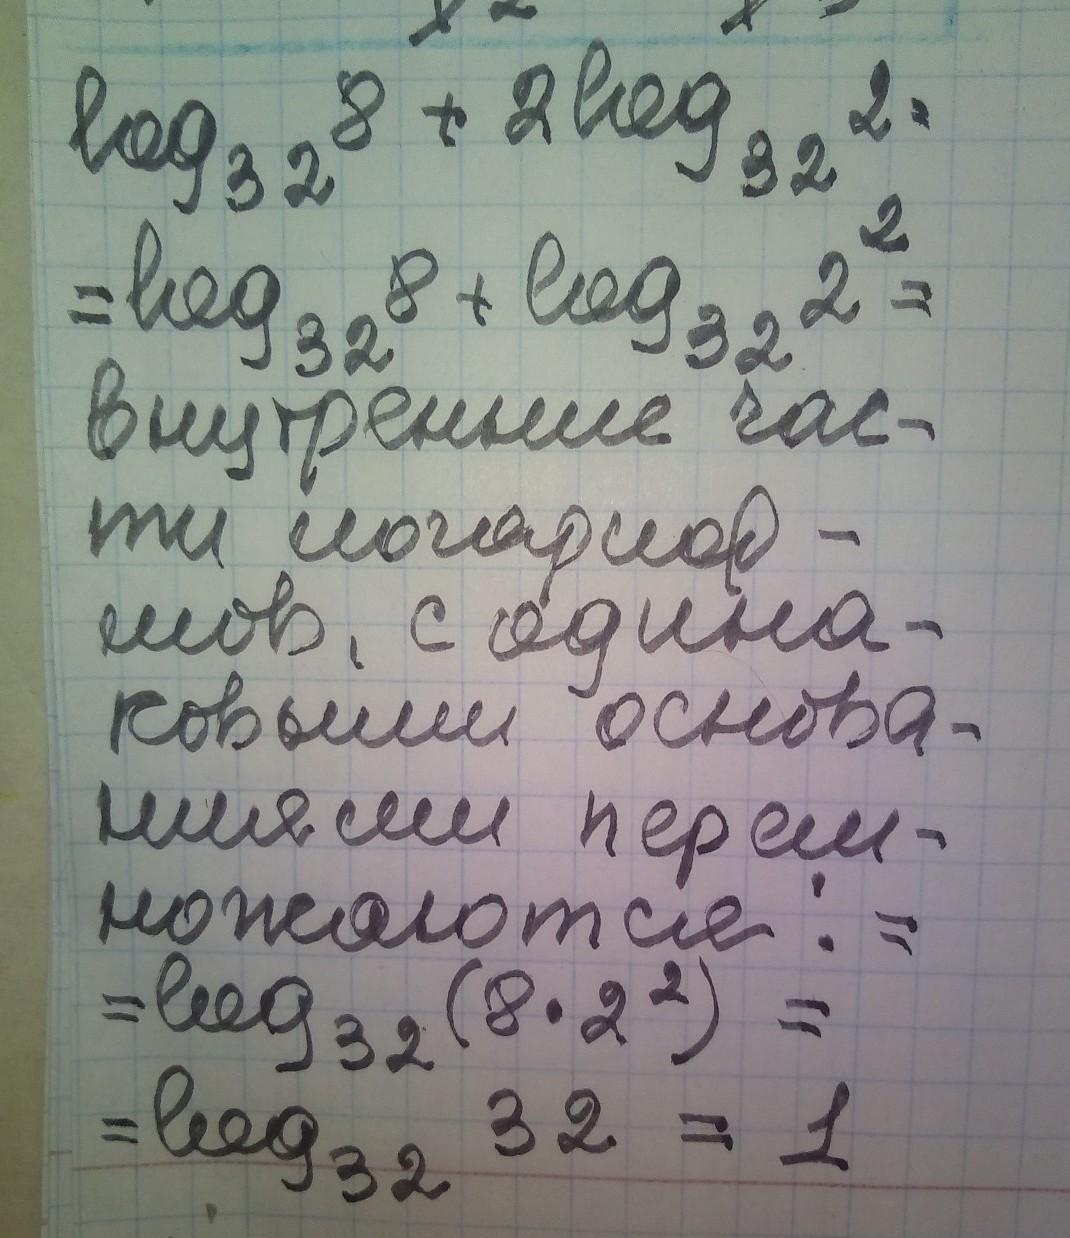 log₃₂ 8 + 2log₃₂ 2 =
= log₃₂ 8 + log₃₂ 2² =
внутренние час-
ти логариф-
мов, с одина-
ковыми основа-
ниями перем-
ножаются: =
= log₃₂ (8 · 2²) =
= log₃₂ 32 = 1